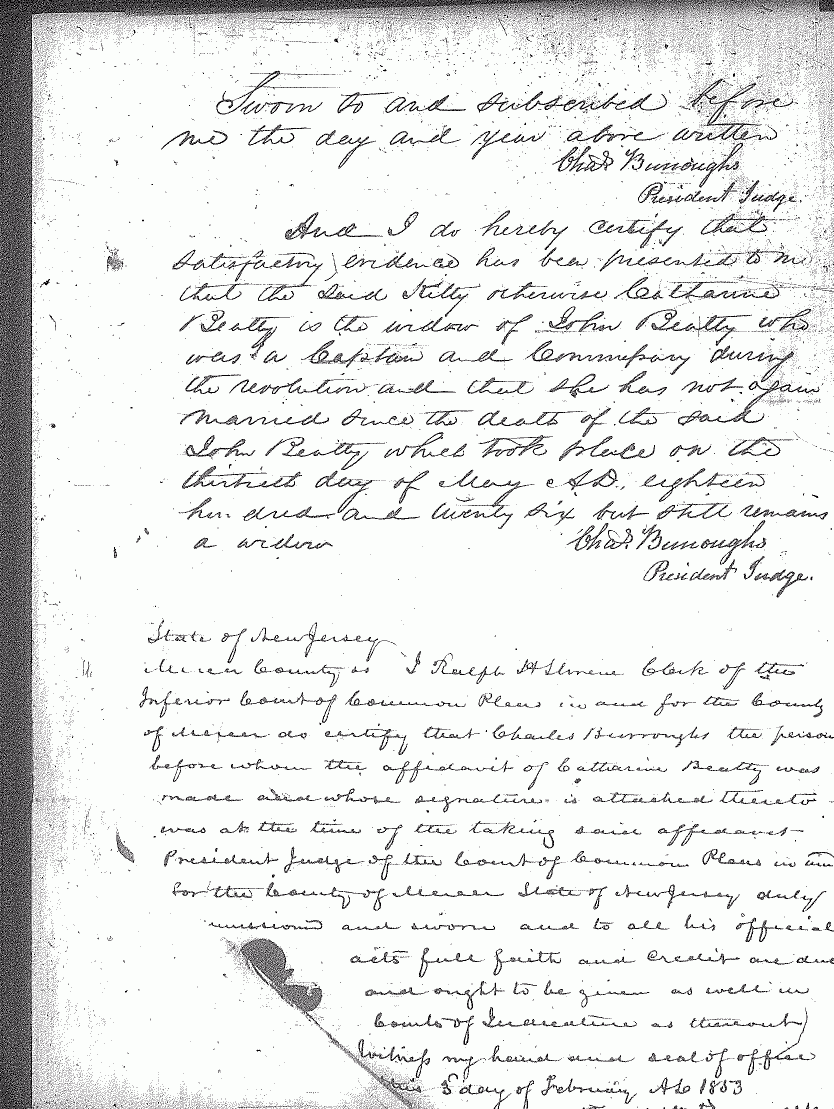 Sworn to and subscribed before
me the day and year above written
Chas Burroughs
President Judge.
And I do hereby certify that
satisfactory evidence has been presented to me
that the said Kitty otherwise Catharine
Beatty is the widow of John Beatty who
was a Captain and Commissary during
the revolution and that she has not again
married since the death of the said
John Beatty which took place on the
thirtieth day of May A.D. eighteen
hundred and twenty six but still remains
a widow
Chas Burroughs
President Judge.
State of New Jersey
Mercer County ss I Ralph H Shreve Clerk of the
Inferior Court of Common Pleas in and for the County
of Mercer do certify that Charles Burroughs the person
before whom the affidavit of Catharine Beatty was
made and whose signature is attached thereto
was at the time of the taking said affidavit
President Judge of the Court of Common Pleas in and
for the County of Mercer State of New Jersey duly
missioned and sworn and to all his official
acts full faith and credit are due
and ought to be given as well in
Courts of Judicature as thereout
Witness my hand and seal of office
this 5 day of February AD 1853